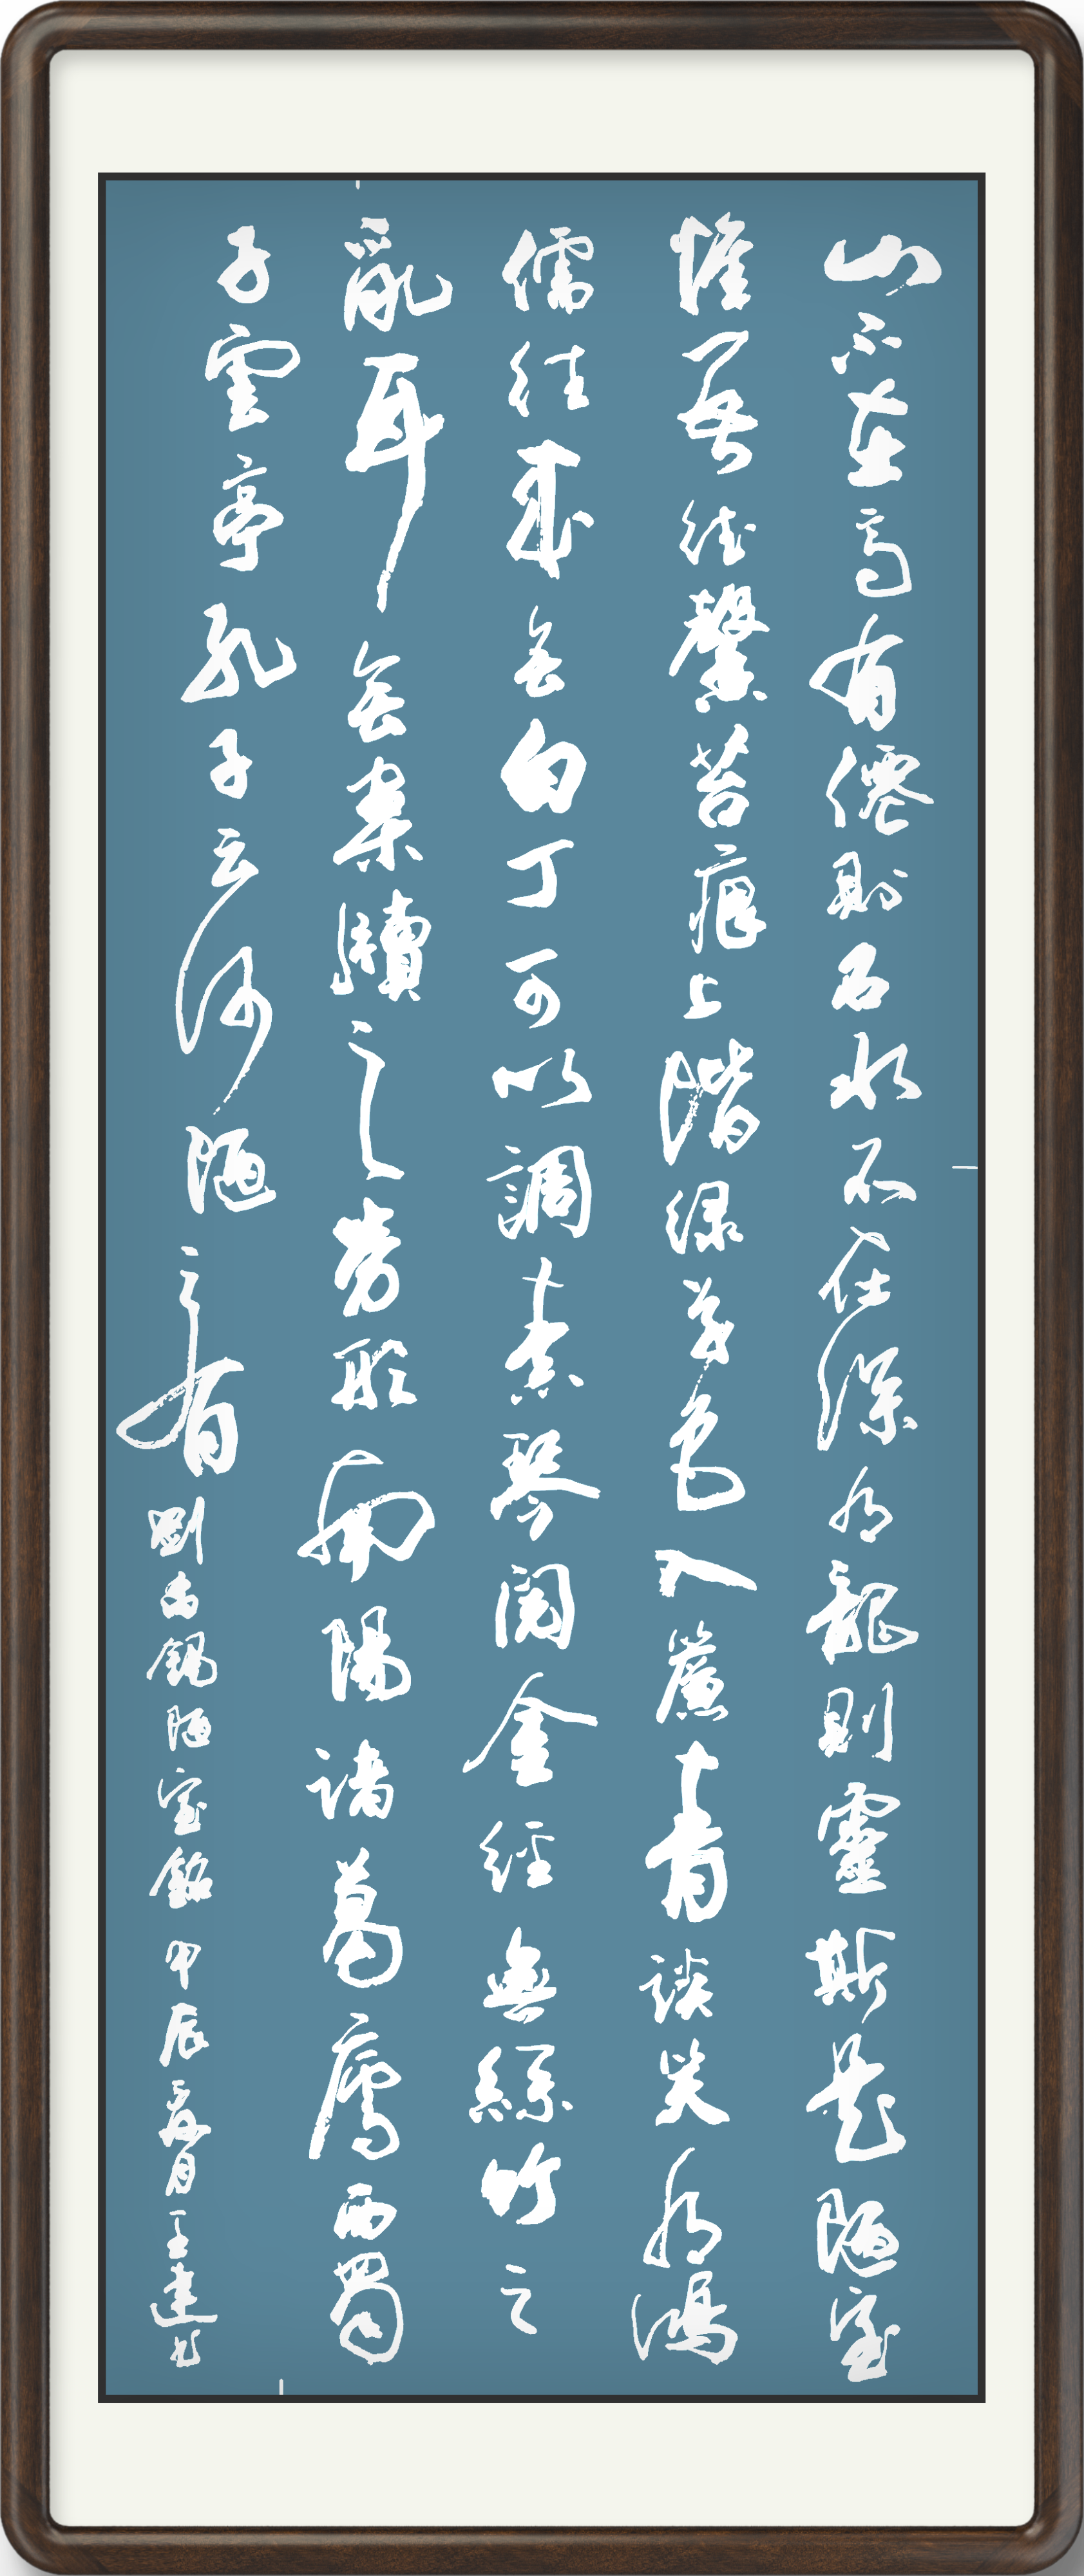 山不在高有僊則名水不在深有龍則靈斯是陋室
惟吾德馨苔痕上階綠草色入簾青談笑有鴻
儒往來無白丁可以調素琴閱金經無絲竹之
亂耳無案牘之勞形南陽諸葛廬西蜀
子雲亭孔子云何陋之有 劉禹錫陋室銘 甲辰夏月王建书